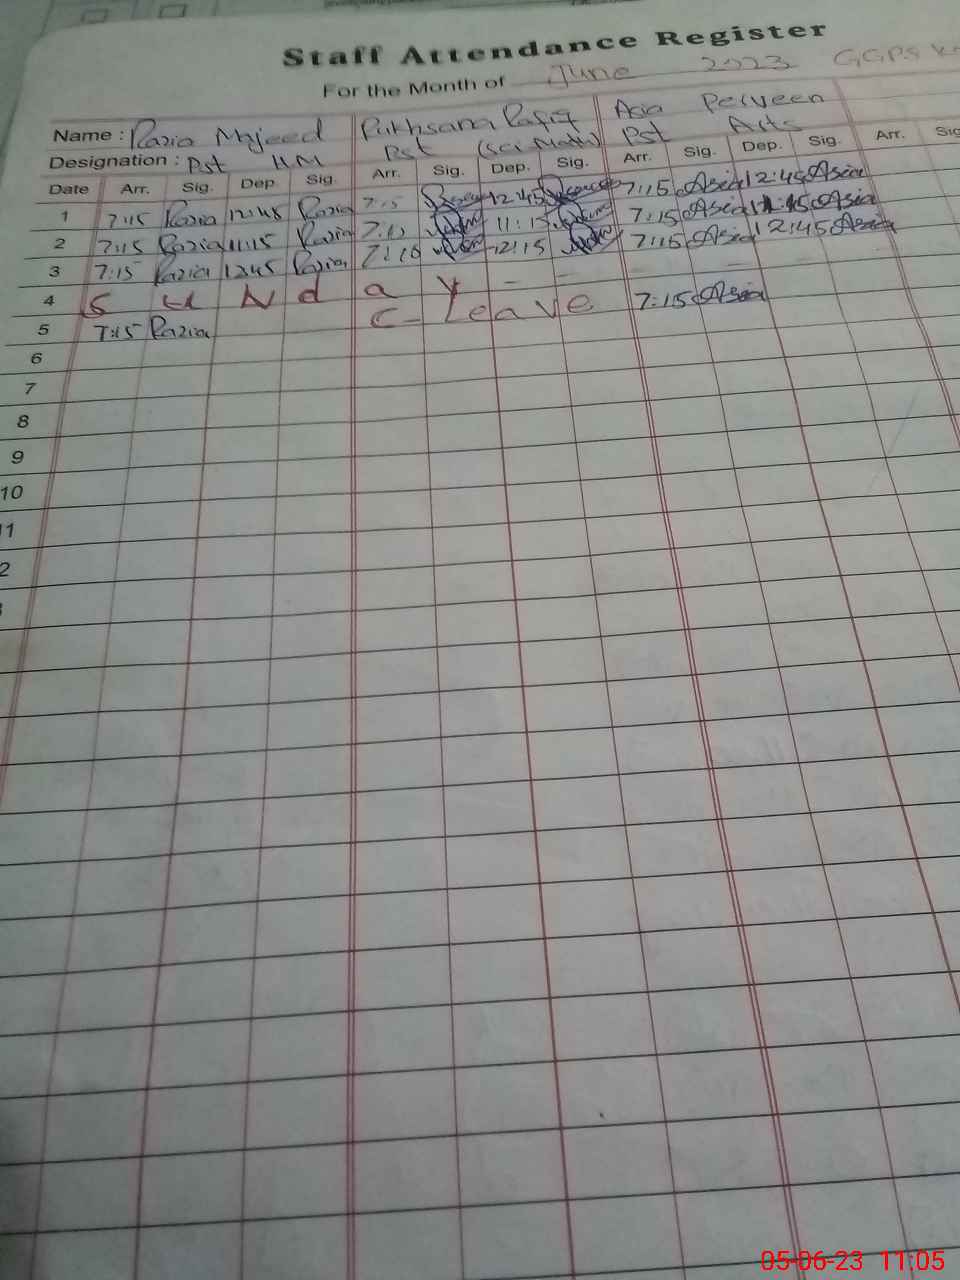 Staff Attendance Register
For the Month of June 2023 GGPS
Name : Razia Majeed Rukhsana Rafiq Asia Perveen
Designation : Pst HM Pst (Sci Math) Pst Arts
Date Arr. Sig. Dep. Sig. Arr. Sig. Dep. Sig. Arr. Sig. Dep. Sig. Arr. Sig
1 7:15 Razia 12:45 Razia 7:15 12:45 7:15 Asia 12:45 Asia
2 7:15 Razia 11:15 Razia 11:15 7:15 Asia 11:15 Asia
3 7:15 Razia 12:45 Razia 12:15 7:15 Asia 12:45 Asia
4 S u N d a y - -
5 7:15 Razia C- Leave 7:15 Asia
6
7
8
9
10
11
2
05-06-23 11:05